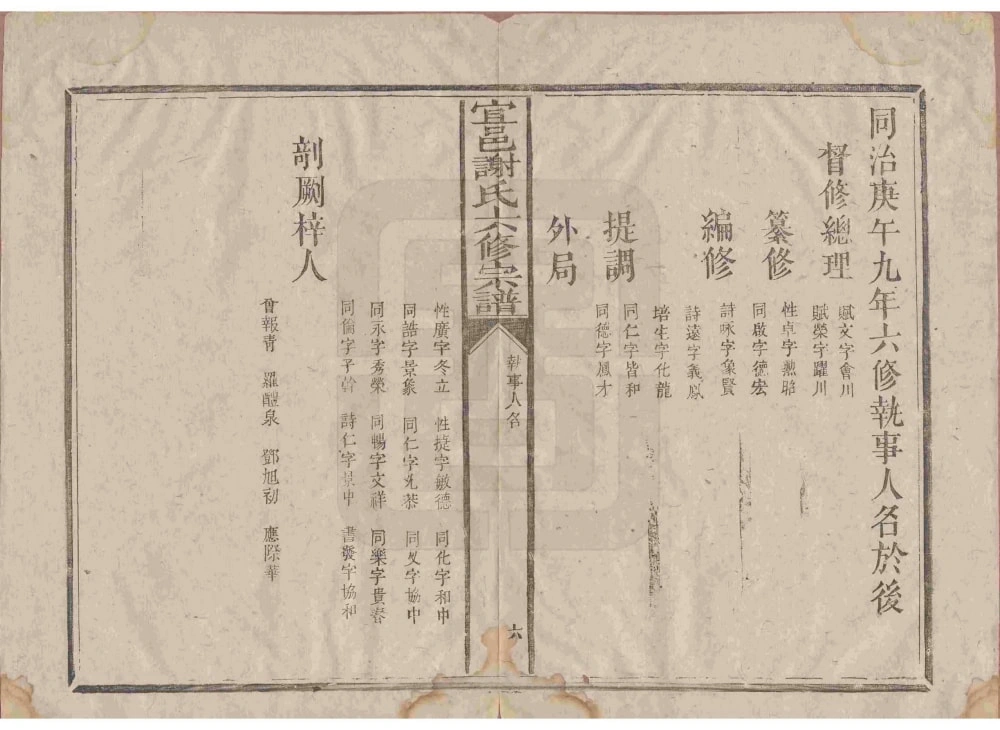 同治庚午九年六修執事人名於後
督修總理
賦文字會川
賦榮字躍川
纂修
性卓字熱昭
同啟字德宏
編修
詩咏字象賢
詩遠字義鳳
培生字化龍
提調
同仁字皆和
同德字鳳才
外局
宜邑謝氏六修宗譜
執事人名
六
性廣字冬立 性提字敏德 同化字和中
同誥字景象 同仁字允恭 同文字協中
同永字秀榮 同暢字文祥 同樂字貴春
同倫字子 詩仁字景中 書發字協和
剞劂梓人
曾報青 羅醴泉 鄧旭初 應際華